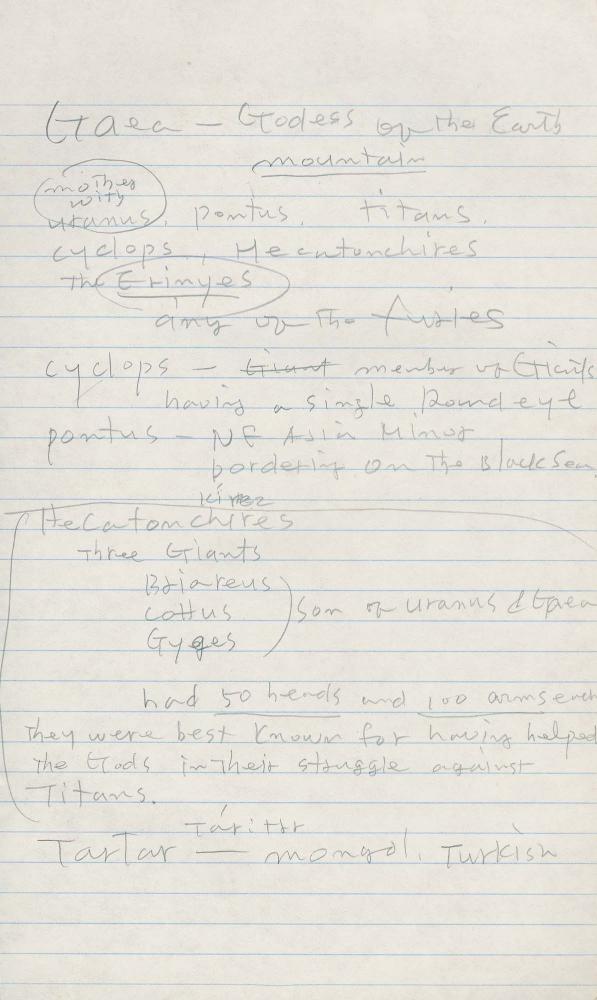 Gaea — Godess of the Earth
mountain
mother
with
uranus, pontus, titans,
cyclops, Hecatonchires
The Erinyes
any of the furies
cyclops — Giant member of Giants
having a single Round eye
pontus — NE Asia Minor
bordering on The Black Sea
Hecatonchires
Three Giants
Briareus
cottus
Gyges
Son of uranus & Gaea
had 50 heads and 100 arms each
They were best Known for having helped
The Gods in Their struggle against
Titans.
TarTar — mongol, Turkish